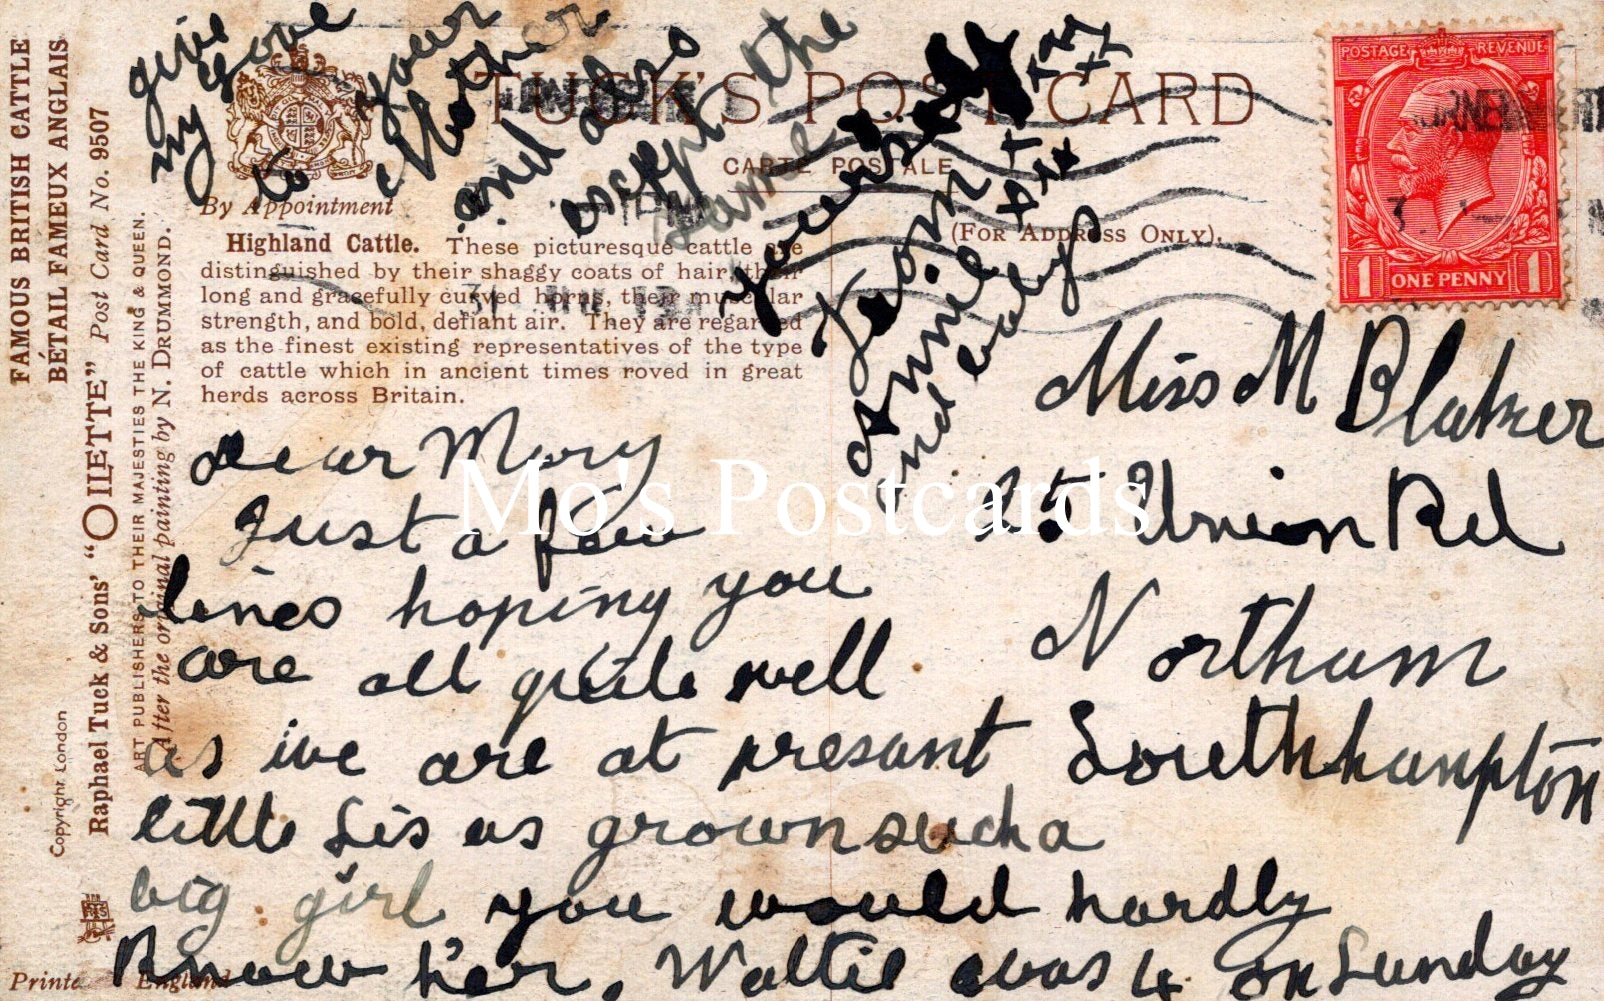 TUCK'S POST CARD
CARTE POSTALE
(FOR ADDRESS ONLY).
POSTAGE REVENUE
1 ONE PENNY 1
FAMOUS BRITISH CATTLE
BÉTAIL FAMEUX ANGLAIS
Raphael Tuck & Sons' "OILETTE" Post Card No. 9507
ART PUBLISHERS TO THEIR MAJESTIES THE KING & QUEEN.
After the original painting by N. DRUMMOND.
Copyright London
By Appointment
Highland Cattle. These picturesque cattle are
distinguished by their shaggy coats of hair, their
long and gracefully curved horns, their muscular
strength, and bold, defiant air. They are regarded
as the finest existing representatives of the type
of cattle which in ancient times roved in great
herds across Britain.
Dear Mary
Just a few
lines hoping you
are all quite well
as we are at presant
little Sis as grown such a
big girl you would hardly
Know her, Wattie was 4 on Sunday
give
my love
to your
Mother
and also
accept the
same
yourself
From
Annie
and baby
Miss M Blatner
25 Union Rd
Northam
Southhampton
England
Mo's Postcards